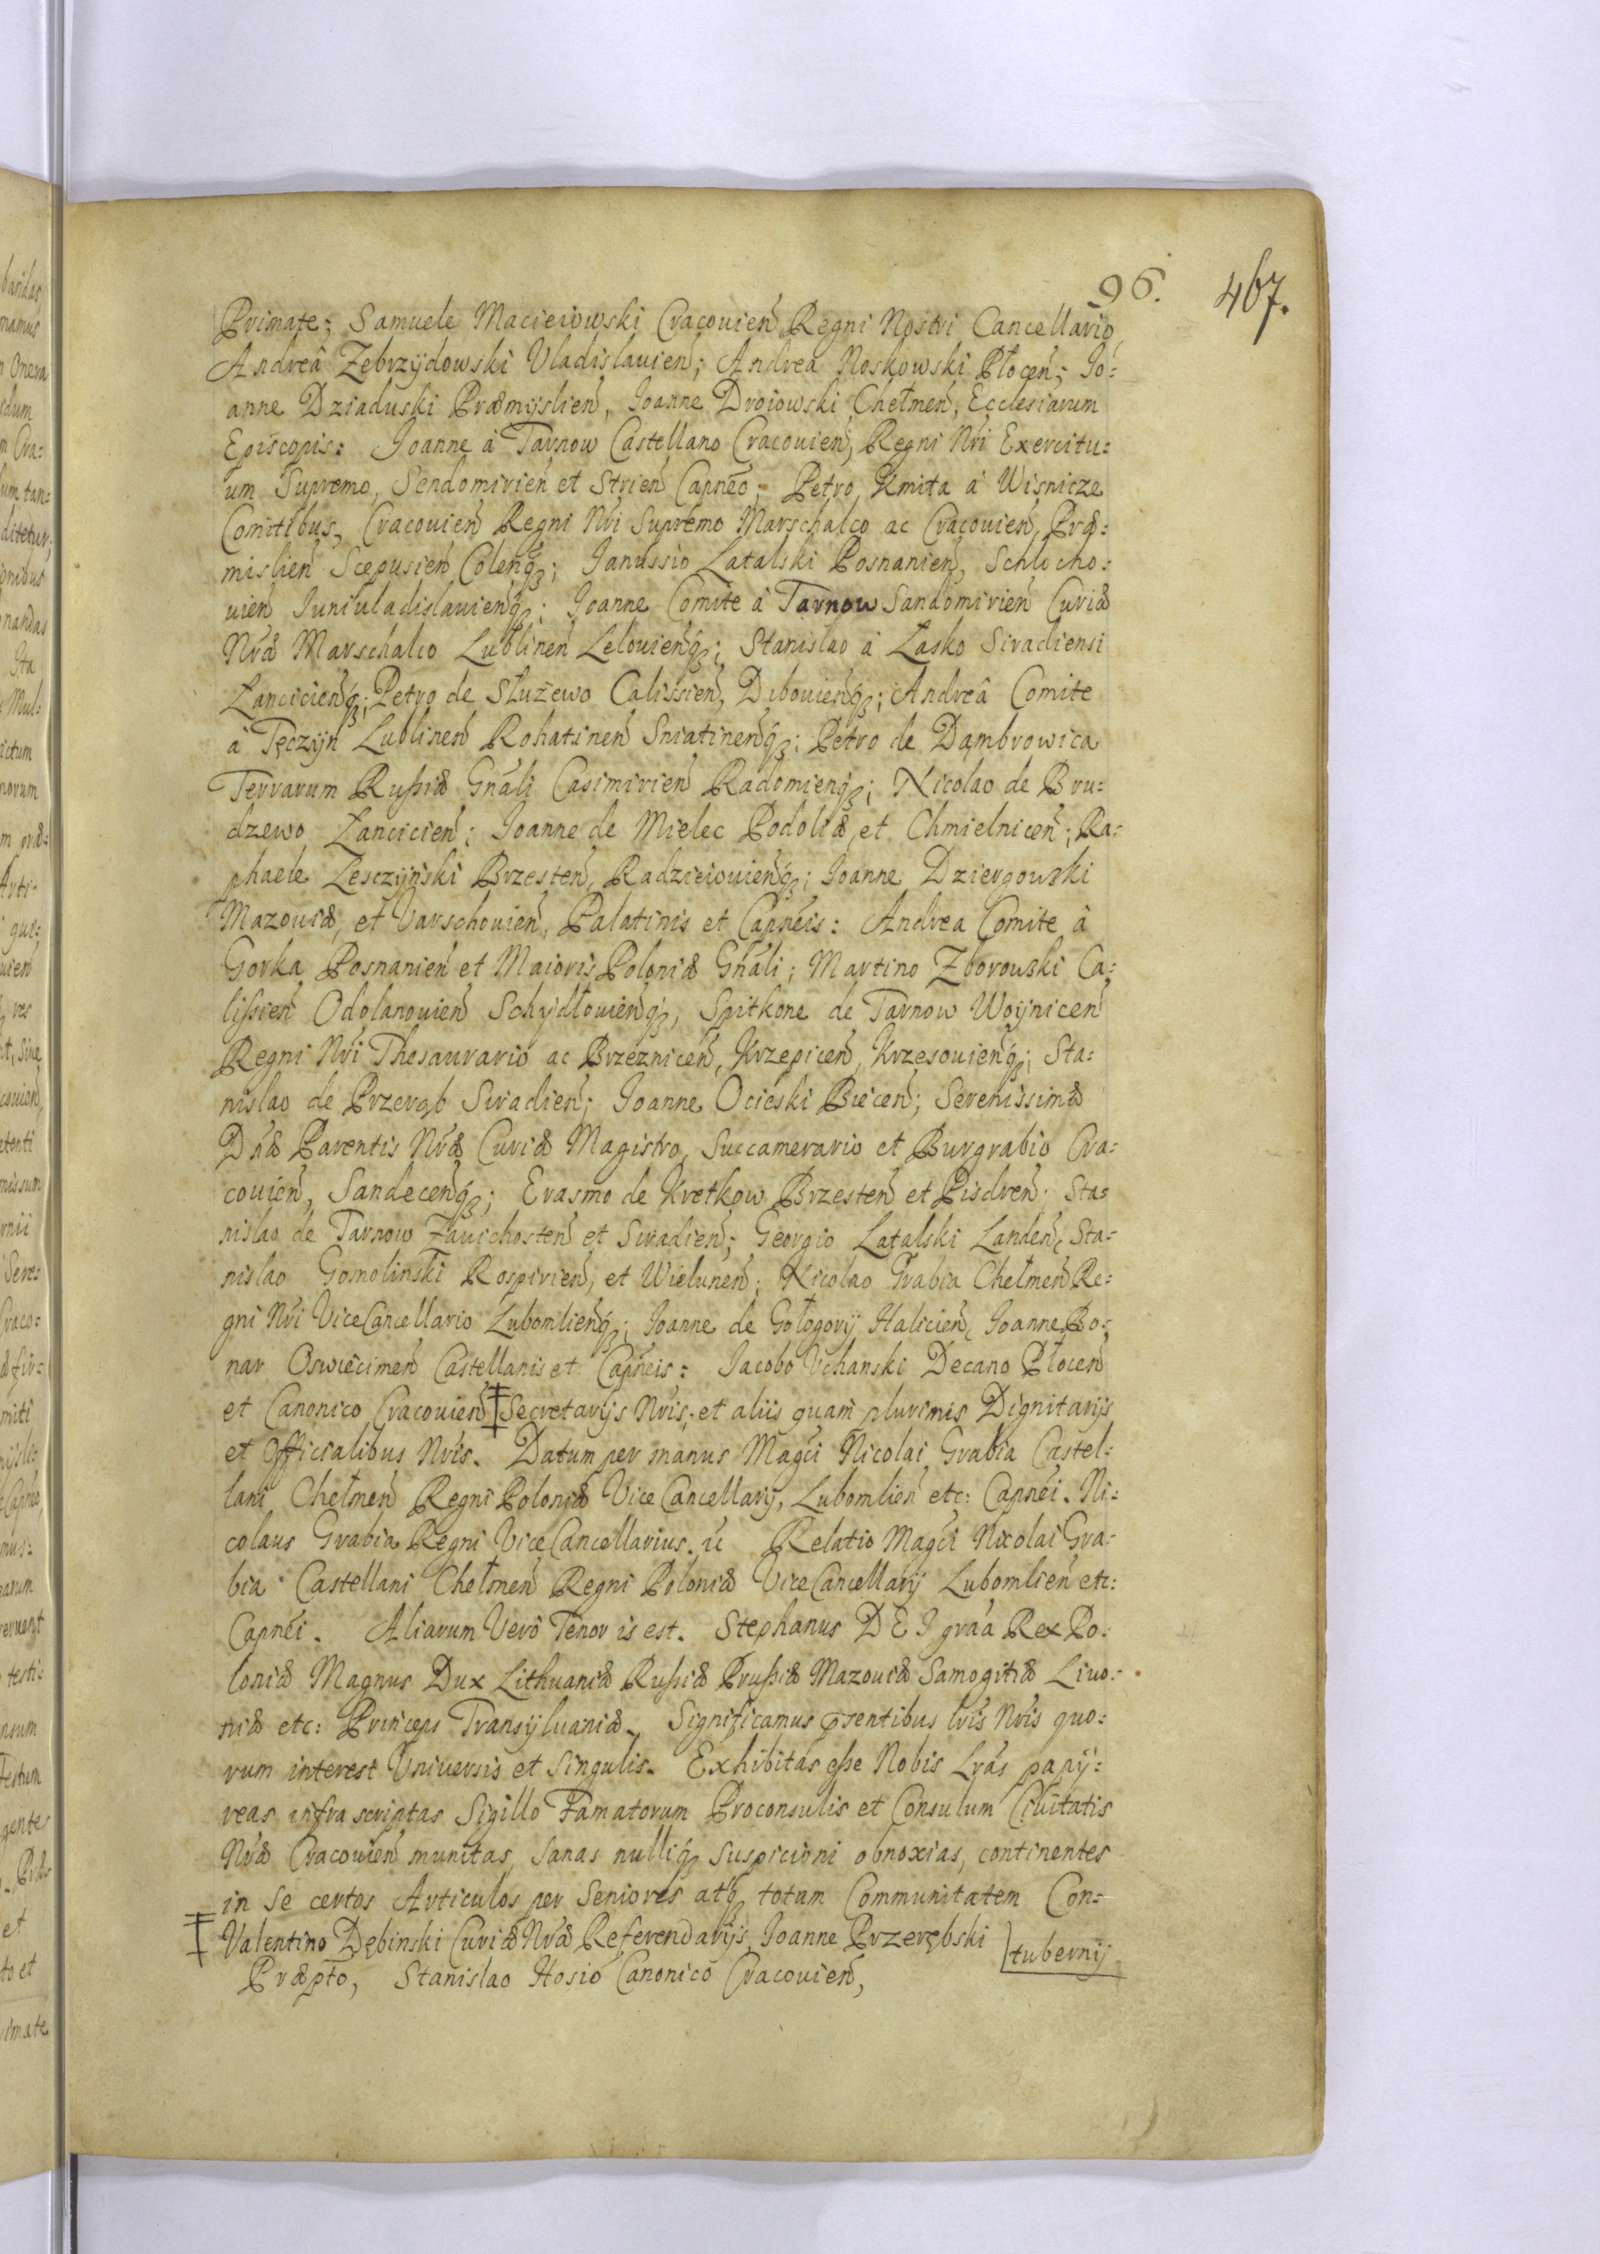 96. 467.
Primate; Samuele Macieiowski Cracouien̄ Regni Nostri Cancellario,
Andreâ Zebrzÿdowski Vladislauien̄; Andrea Noskowski Płocen̄; Io:
anne Dziaduski Præmÿslien̄, Joanne Droiowski Chełmen̄, Ecclesiarum
Episcopis: Joanne à Tarnow Castellano Cracouien̄, Regni Nr̄i Exercitu:
um Supremo, Sendomirien̄ et Strien̄ Capn̄eo; Petro Kmita à Wisnicze
Comitibus, Cracouien̄ Regni Nr̄i Supremo Marschalco ac Cracouien̄, Præ:
mislien̄ Scepusien̄ Colen̄qꝫ; Janussio Latalski Posnanien̄, Schlocho:
uien̄ Juniuladislauien̄qꝫ; Joanne Comite à Tarnow Sandomirien̄ Curiæ
Nr̄æ Marschalco Lublinen̄ Lelouien̄qꝫ; Stanislao à Łasko Siradiensi
Lancicien̄qꝫ; Petro de Służewo Calissien̄, Dibouien̄qꝫ; Andreâ Comite
à Tęczÿn Lublinen̄ Rohatinen̄ Sniatinen̄qꝫ; Petro de Dąmbrowica
Terrarum Rußiæ Gn̄ali Casimirien̄ Radomien̄qꝫ; Nicolao de Bru:
dzewo Łancicien̄; Joanne de Mielec Podoliæ, et Chmielnicen̄; Ra:
phaele Lesczÿński Brzesten̄, Radzieiouien̄qꝫ; Joanne Dziergowski
Mazouiæ, et Varschouien̄, Palatinis et Capn̄eis: Andrea Comite à
Gorka Posnanien̄ et Maioris Poloniæ Gn̄ali; Martino Zborowski Ca:
lißien̄ Odolanouien̄ Schÿdłouien̄qꝫ, Spitkone de Tarnow Woÿnicen̄
Regni Nr̄i Thesaurario ac Brzeznicen̄, Krzepicen̄, Krzesouien̄qꝫ; Sta:
nislao de Przerąb Siradien̄; Joanne Ocieski Biecen̄; Serenissimæ
Dn̄æ Parentis Nr̄æ Curiæ Magistro, Succamerario et Burgrabio Cra:
couien̄, Sandecen̄qꝫ; Erasmo de Kretkow Brzesten̄ et Pisdren̄; Sta:
nislao de Tarnow Zauichosten̄ et Siradien̄; Georgio Latalski Landen̄, Sta:
nislao Gomolinski Rospirien̄, et Wielunen̄; Nicolao Grabia Chełmen̄ Re:
gni Nr̄i ViceCancellario Lubomlien̄qꝫ; Joanne de Gołogorÿ Halicien̄, Joanne Bo:
nar Oswiecimen̄ Castellanis et Capn̄eis: Jacobo Vchanski Decano Płocen̄
et Canonico Cracouien̄ ‡ Secretarÿs Nr̄is, et aliis quam plurimis Dignitarÿs
et Officialibus Nr̄is. Datum per manus Mag̃ci Nicolai Grabia Castel:
lani Chełmen̄ Regni Poloniæ ViceCancellarÿ, Lubomlien̄ etc: Capn̄ei. Ni:
colaus Grabia Regni ViceCancellarius. Relatio Mag̃ci Nicolai Gra:
bia Castellani Chełmen̄ Regni Poloniæ ViceCancellarÿ Lubomlien̄ etc:
Capn̄ei. Aliarum Verò Tenor is est. Stephanus DEI gr̄aa Rex Po:
loniæ Magnus Dux Lithuaniæ Rußiæ Prußiæ Mazouiæ Samogitiæ Liuo:
niæ etc: Princeps Transÿluaniæ. Significamus p̄sentibus lr̄is Nr̄is quo:
rum interest Vniuersis et Singulis. Exhibitas eße Nobis Lr̄as papÿ:
reas infra scriptas Sigillo Famatorum Proconsulis et Consulum Ciuitatis
Nr̄æ Cracouien̄ munitas, Sanas nulliqꝫ Suspicioni obnoxias, continentes
in Se certos Articulos per Seniores atqꝫ totam Communitatem Con:
‡ Valentino Dębinski Curiæ Nr̄æ Referendarÿs, Joanne Przerębski tubernÿ
Præpto, Stanislao Hosio Canonico Cracouien̄,